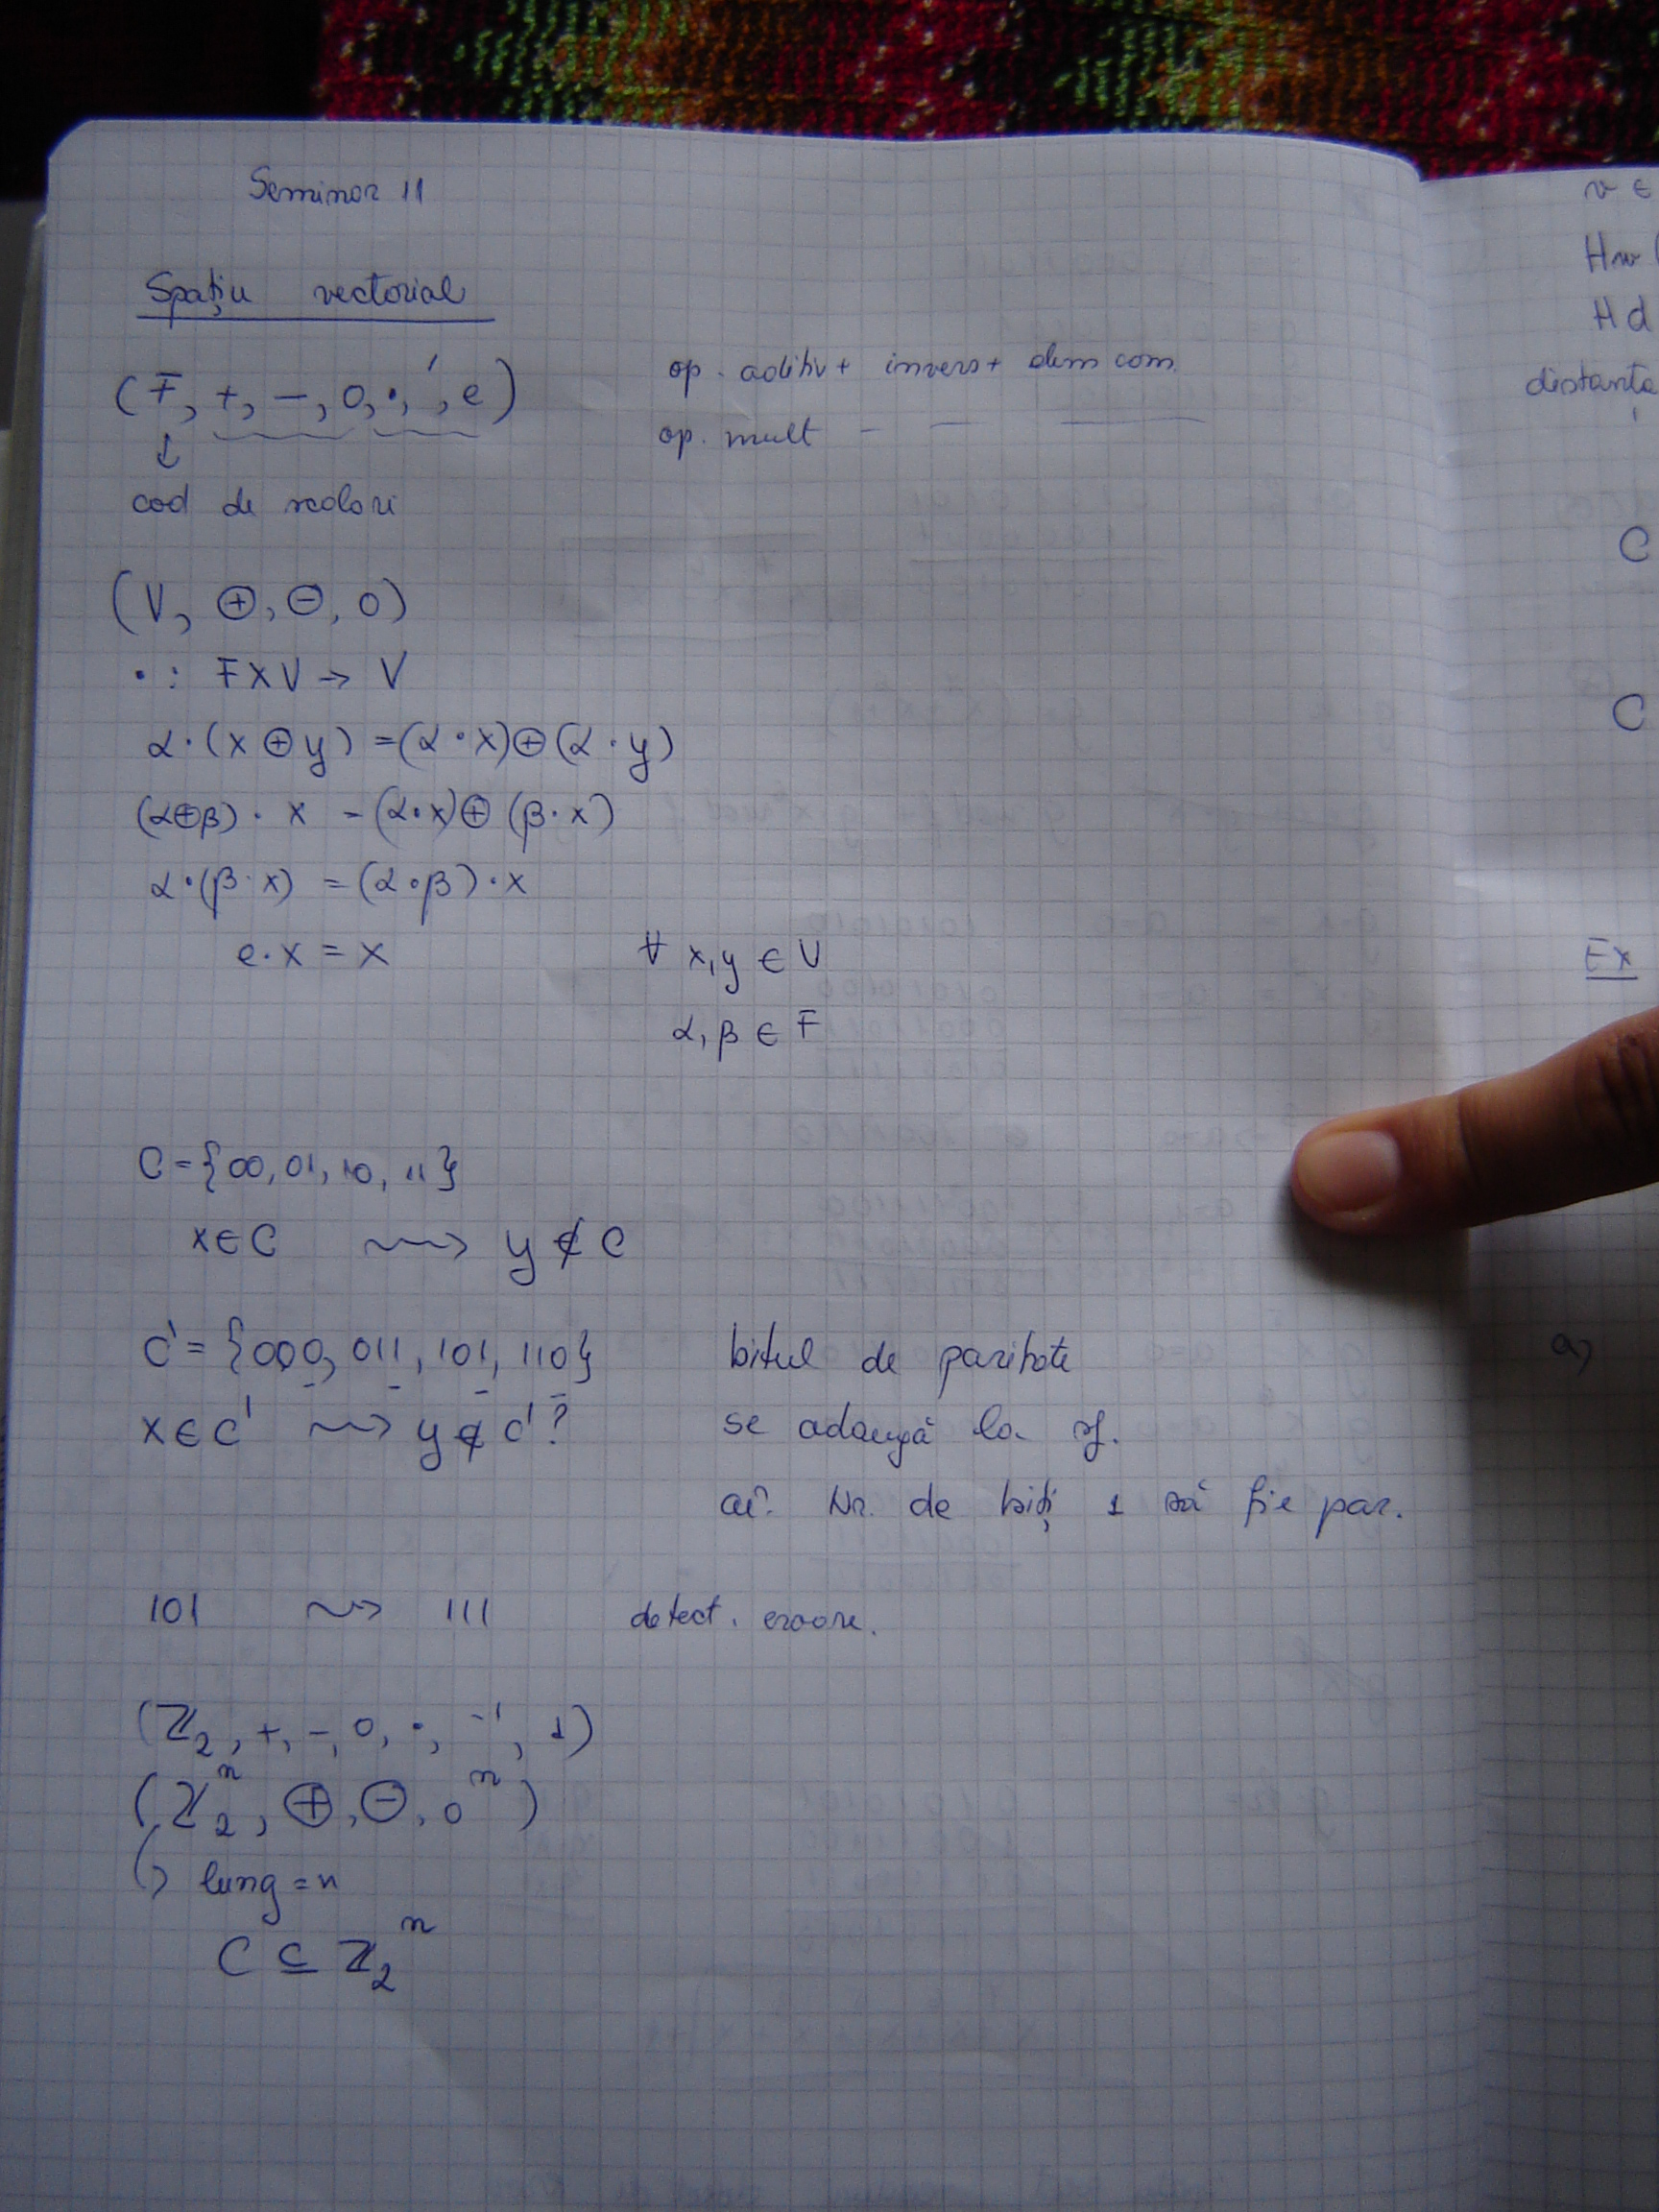 Seminar 11
Spațiu vectorial
(F, +, -, 0, ·, ', e) op. aditiv + invers + elem com.
op. mult - — —
↓
cod de scalari
(V, ⊕, ⊖, 0)
· : F X V → V
α·(x ⊕ y) = (α·x) ⊕ (α·y)
(α⊕β) · x = (α·x) ⊕ (β·x)
α·(β·x) = (α·β)·x
e·x = x ∀ x,y ∈ V
α, β ∈ F
C = {00, 01, 10, 11}
x ∈ C ⇝ y ∉ C
C' = {000, 011, 101, 110} bitul de paritate
x ∈ C' ⇝ y ∉ C'? se adaugă la sf.
aî. Nr. de biți 1 să fie par.
101 ⇝ 111 detect. eroare.
(ℤ₂, +, -, 0, ·, ⁻¹, 1)
(ℤ₂ⁿ, ⊕, ⊖, 0ⁿ)
↳ lung = n
C ⊆ ℤ₂ⁿ
v ∈
Hw (
Hd
distanța
C
C
Ex
a)